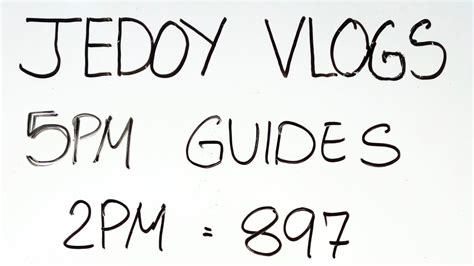 JEDOY VLOGS
5PM GUIDES
2PM = 897